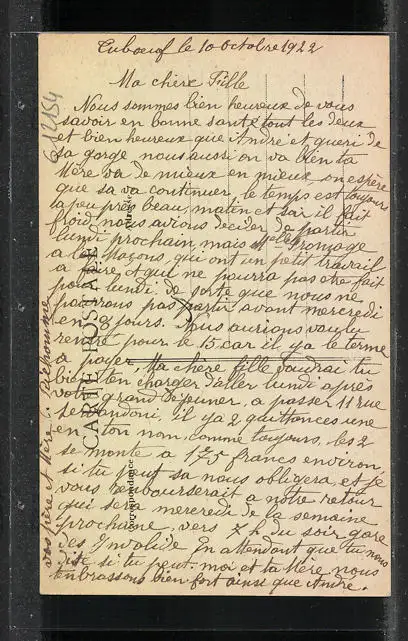 Cuboeuf le 10 octobre 1922
Ma chère Fille
Nous sommes bien heureux de vous
savoir en bonne santé tout les deux
et bien heureux que André et gueri de
sa gorge, nous aussi on va bien ta
Mère va de mieux en mieux, on espère
que sa va continuer, le temps est toujours
a peu près beau, matin et soir il fait
froid, nous avions decider de partir
lundi prochain, mais Melle Fromage
a les Maçons, qui ont un petit travail
a faire, et qui ne pourra pas etre fait
pour lundi, de sorte que nous ne
pourrons pas partir avant mercredi
en 8 jours. Nous aurions voulu
rentré pour le 15, car il, ya le terme
a payer, Ma chère fille voudrai tu
bien t'en charger d'aller lundi après
votre grand dejeuner, a passer 11 rue
Servandoni, il y a 2 quittances une
en ton nom, comme toujours, les 2
se monte a 175 francs environ,
si tu peut sa nous obligera, et je
vous rembourserait a notre retour
qui sera mercredi de la semaine
prochaine, vers 7 h. du soir gare
des Invalide En attendant que tu nous
dise si tu peut. moi et ta Mère nous
t'enbrassons bien fort ainsi que André.
vos père et Mère. Prichomme
CARTE POSTALE
Correspondance
612154